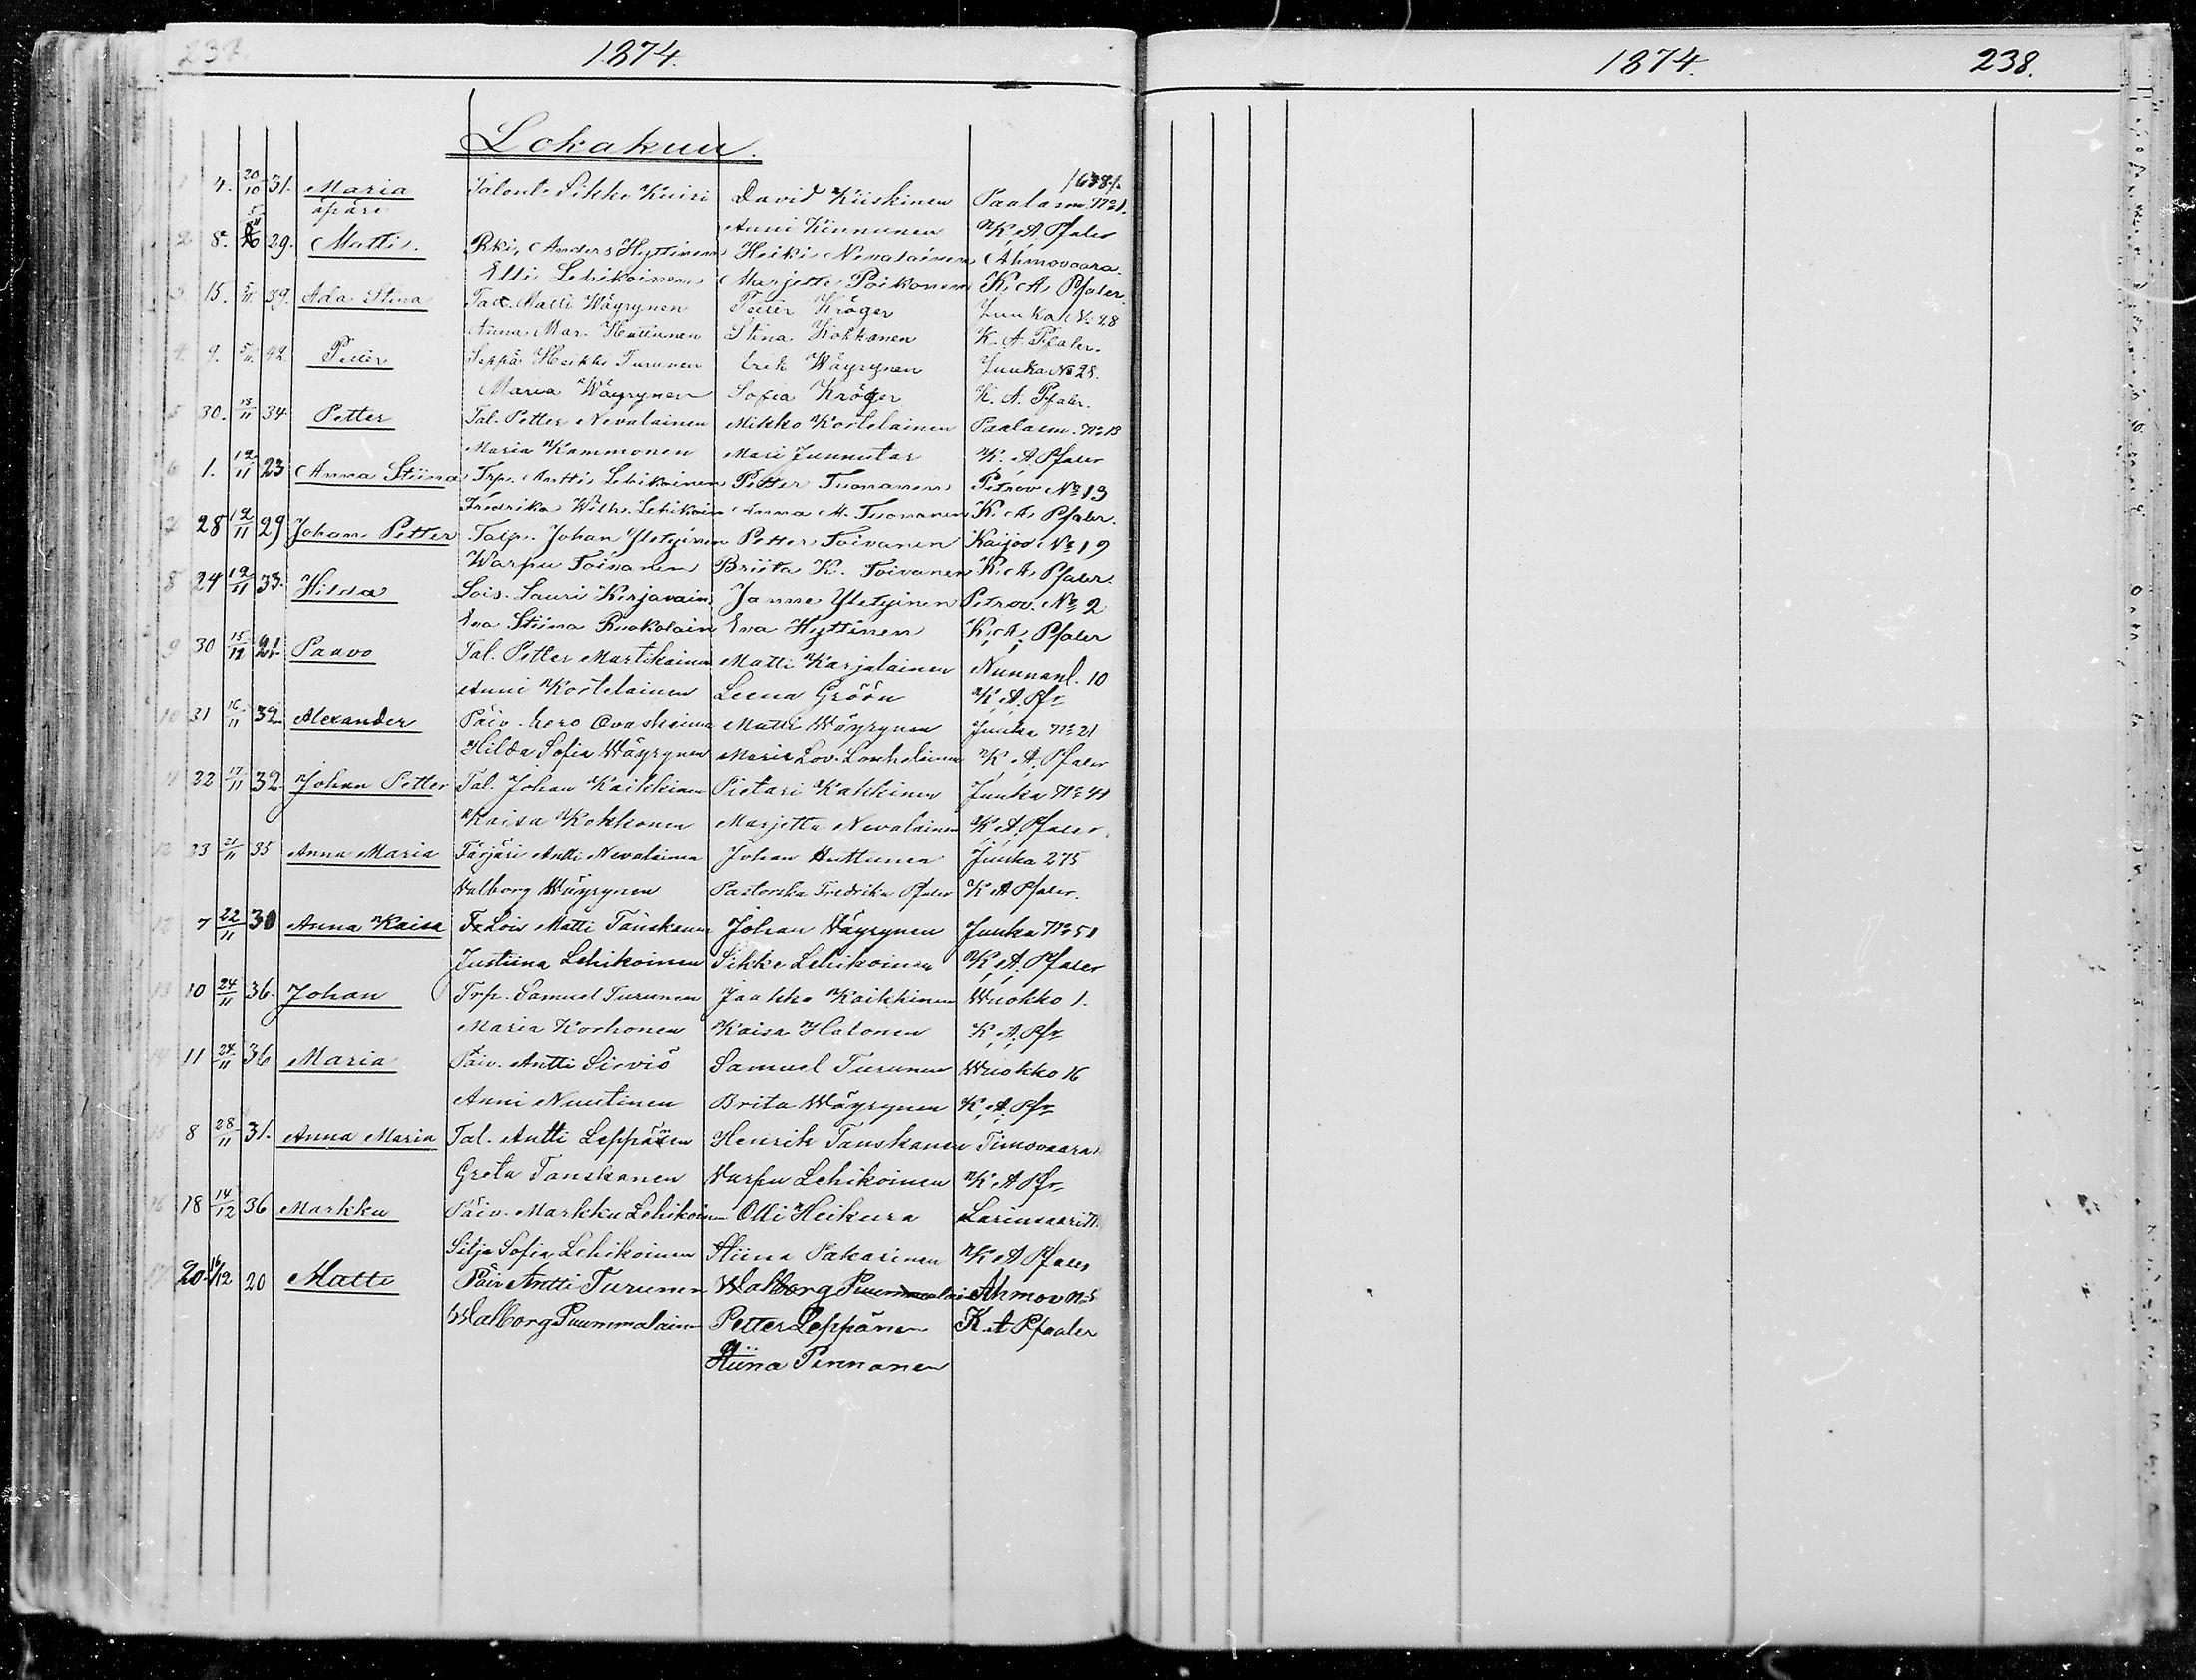 237. 1874. 1874. 238.
Lokakuu.
1638/.
1 4. 20/10 31. Maria Talont. Sikke Kuiri David Kiiskinen Paalasm. No 21.
äpäre Anni Kinnunen K. A. Pfaler
2 8. 29. Matti. Rki, Anders Hyttinen Heiki Nevalainen Ahmovaara.
Elli Lehikoinen Marjetta Poikonen K. A. Pfaler.
3. 15. 5/11 39. Ada Stina Matti Wäyrynen Petter Kröger Juuka No 28
Anna Mar. Huttunen Stina Kokkonen K. A. Pfaler.
4. 9. 5/11 42. Petter Seppä Heikki Turunen Erik Wäyrynen Juuka No 28.
Maria Wäyrynen Sofia Kröger K. A. Pfaler.
5 30. 13/11 34 Petter Tal. Petter Nevalainen Mikko Kortelainen Paalasm. No 13
Maria Kammonen Mari Junnutar K. A. Pfaler
6 1. 12/11 23 Anna Stiina Trp. Antti Lehikoinen Petter Tuonanen Petrov No 19
Fredrika Wilh. Lehikoin Anna M. Tuonanen K. A. Pfaler.
7 28 12/11 29 Johan Petter Talp. Johan Yletyinen Petter Toivanen Kaijoo No 19
Warpu Toivanen Briita K. Toivanen K. A. Pfaler.
8 24 12/11 33. Hilda Lois. Lauri Kirjavain Janne Yletyinen Petrov. No 2
Eva Stiina Ruokolain Eva Hyttinen K. A. Pfaler
9 30 15/11 21. Paavo Tal. Petter Martikainen Matti Karjalainen Nunnanl. 10
Anni Kortelainen Leena Gröön K. A. Pfr
10 31 16/11 32 Alexander Päiv. Eero Ovaskainen Matti Wäyrynen Juuka No 21
Hilda Sofia Wäyrynen Maria Lov. Louhelainen K. A. Pfaler
11 22 17/11 32 Johan Petter Tal. Johan Kaikkinen Pietari Kakkinen Juuka No 41
Kaisa Kokkonen Marjetta Nevalainen K. A. Pfaler.
12 23 21/11 35 Anna Maria Färjäri Antti Nevalainen Johan Huttunen Juuka 275
Valborg Wäyrynen Pastorska Fredrika Pfaler K A Pfaler.
12 7 22/11 30 Anna Kaisa Lois Matti Tanskanen Johan Wäyrynen Juuka No 51
Justiina Lehikoinen Sikke Lehikoinen K. A. Pfaler
13 10 24/11 36. Johan Trp. Samuel Turunen Jaakko Kaikkinen Wuokko 1.
Maria Korhonen Kaisa Halonen K. A. Pfr
14 11 24/11 36 Maria Päiv. Antti Sirviö Samuel Turunen Wuokko 16
Anni Nuutinen Brita Wäyrynen K. A. Pfr
15 8 28/11 31. Anna Maria Tal. Antti Leppänen Henrik Tanskanen Timovaara
Greta Tanskanen Varpu Lehikoinen K A Pfr
16 18 14/12 36 Markku Päiv. Markku Lehikoinen Olli Heikura Larinsaari
Silja Sofia Lehikoinen Stiina Pakarinen K A Pfaler
17 20. 16/12 20 Matti Päiv Antti Turunen Walborg Puummalai Ahmov No 5
Walborg Puummalainen Petter Leppänen K. A Pfaaler
Stiina Pennanen